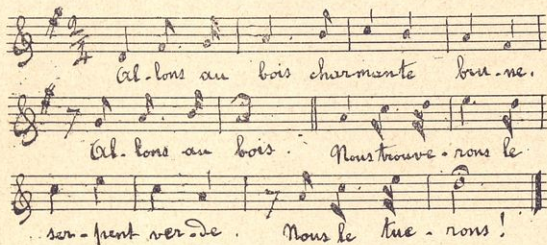 2
4
Al-lons au bois charmante bru-ne.
Al-lons au bois. Nous trouve-rons le
ser-pent ver-de. Nous le tue-rons!